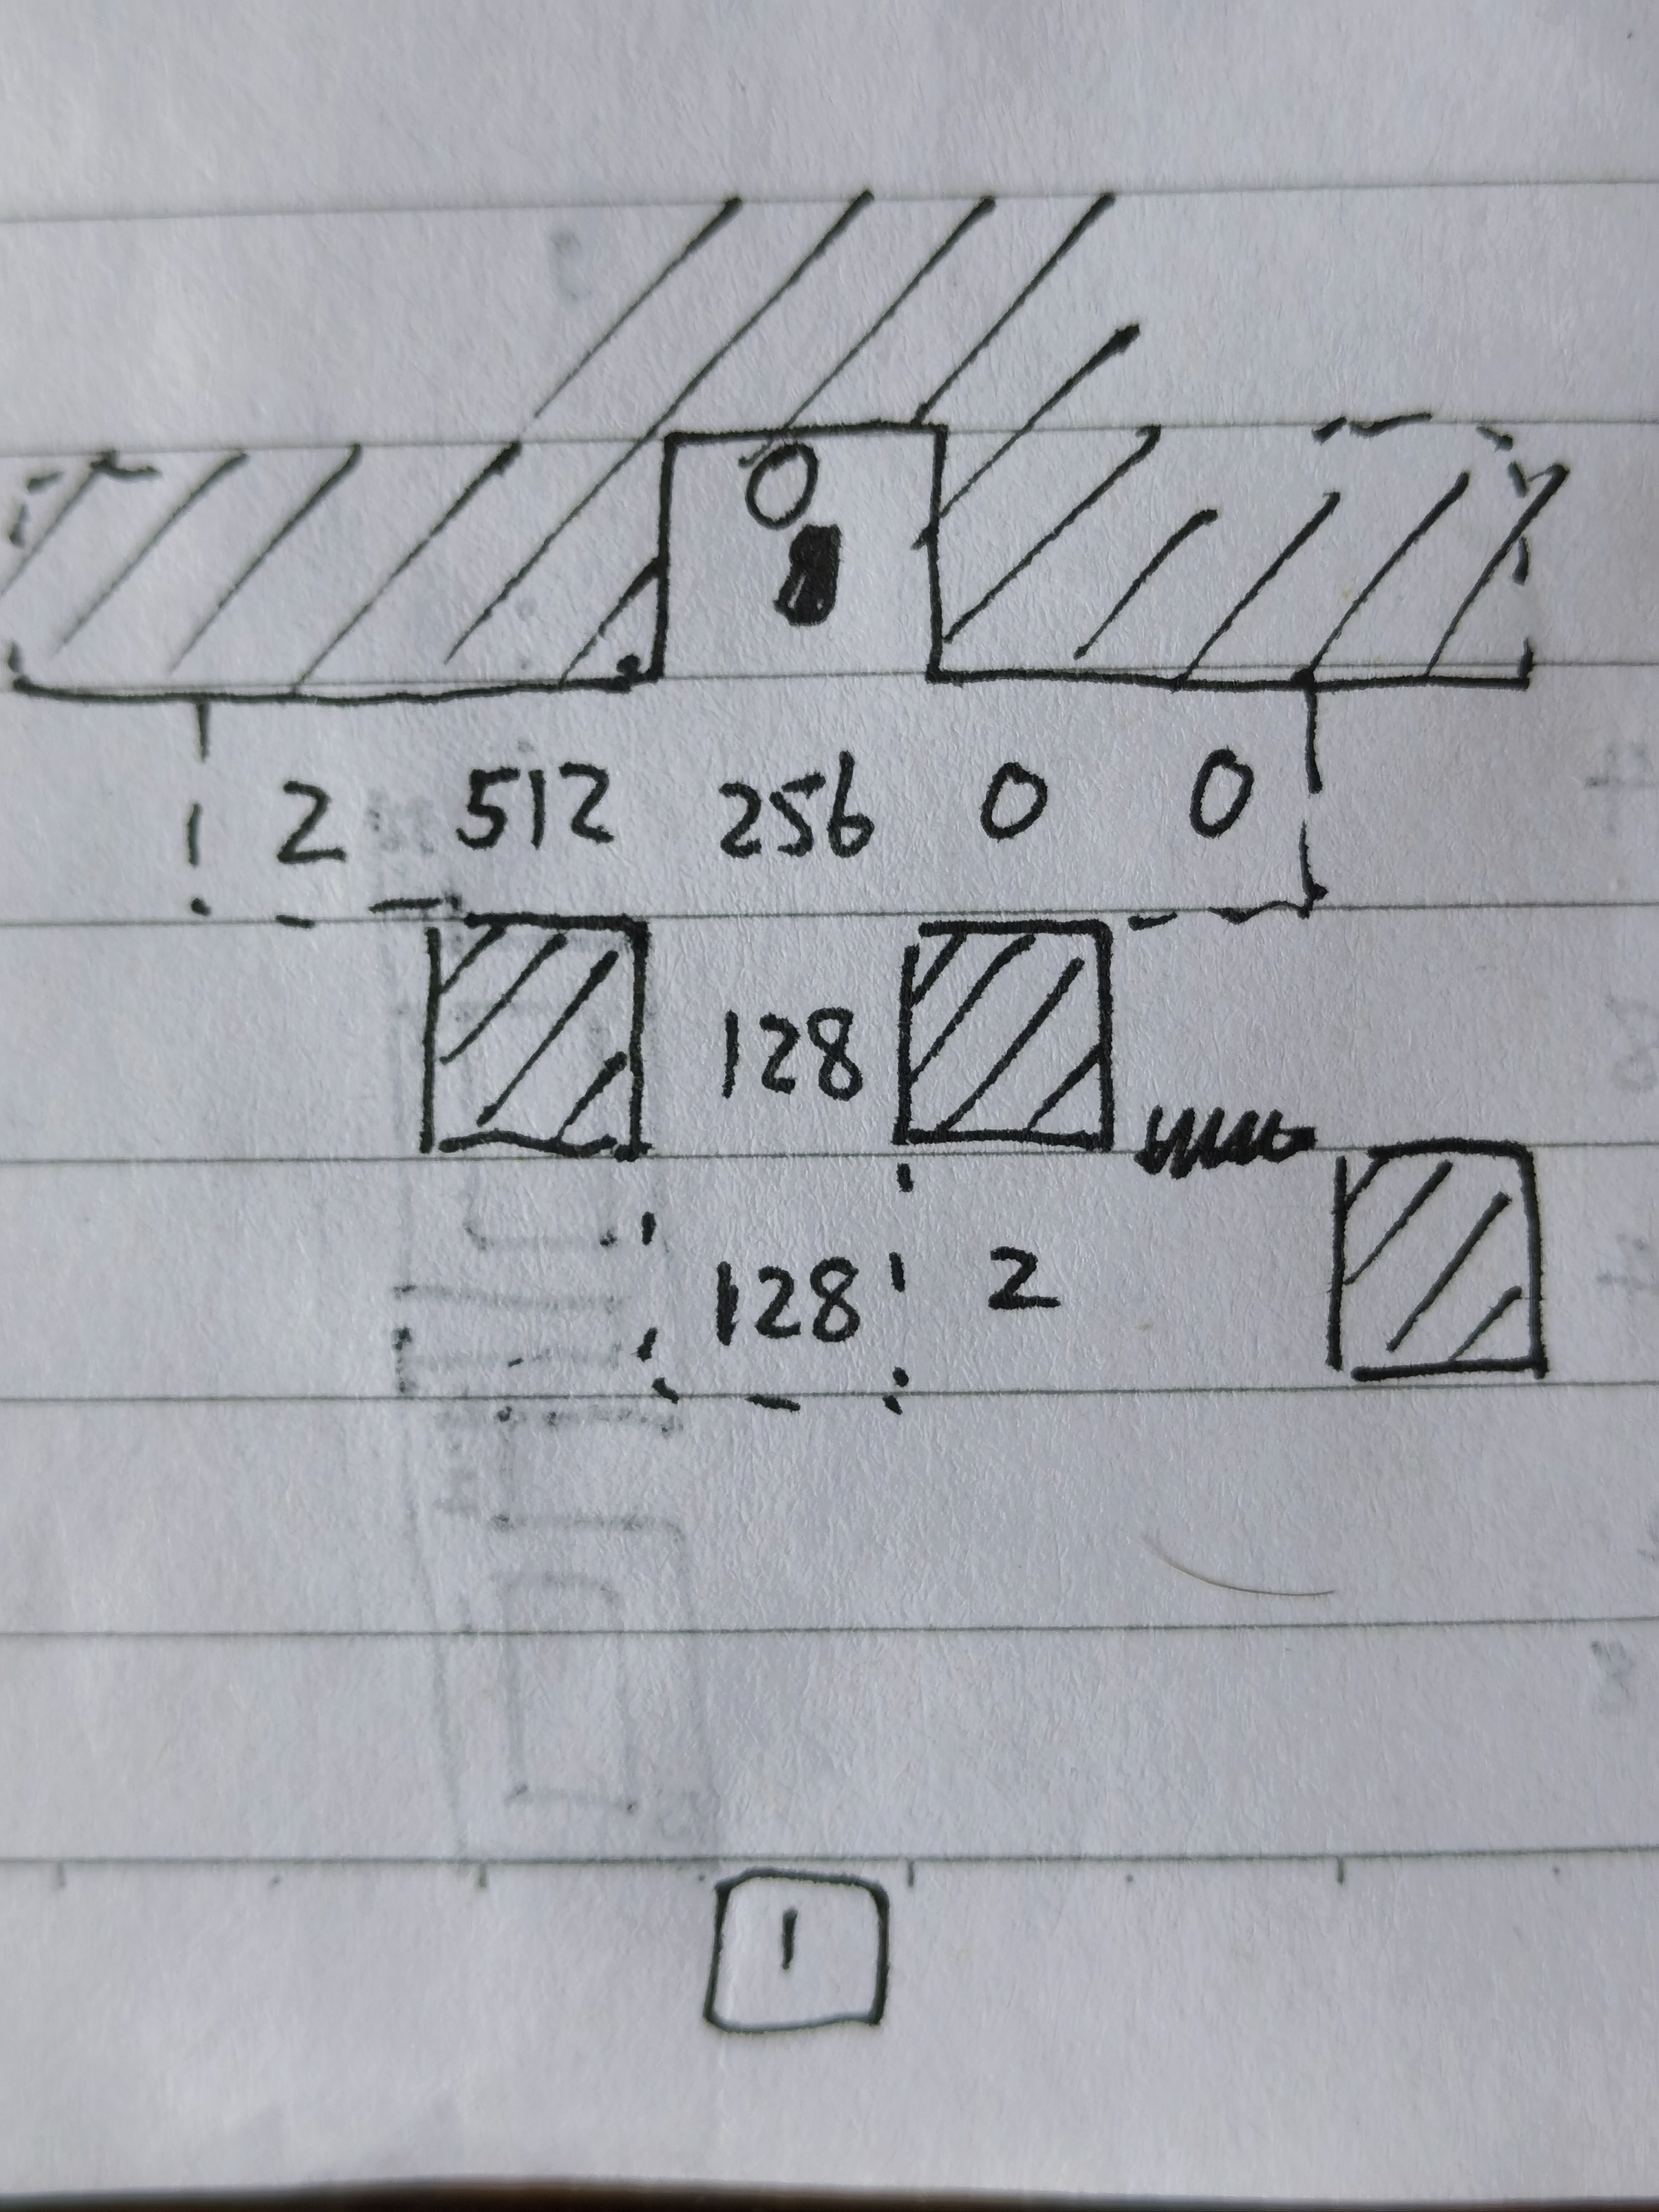 0
2 512 256 0 0
128
128 2
1